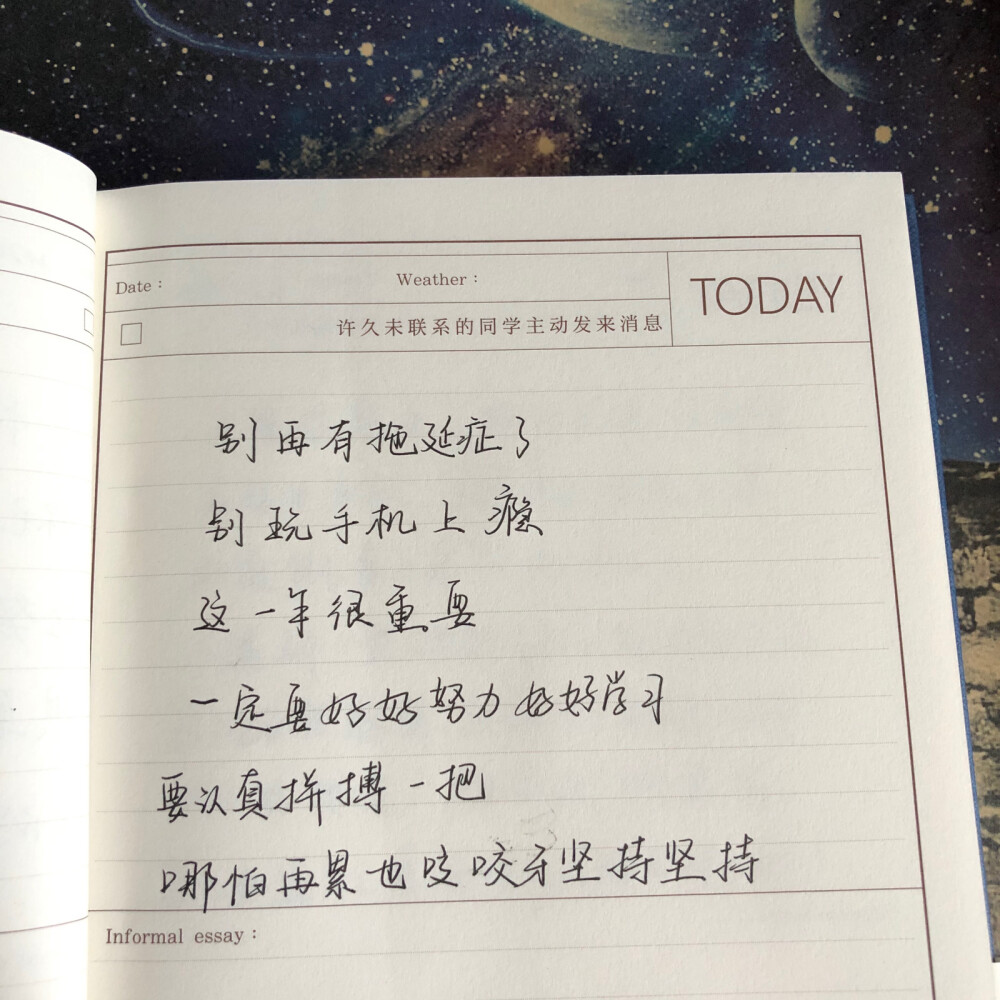 Date：
Weather：
TODAY
许久未联系的同学主动发来消息
别再有拖延症了
别玩手机上瘾
这一年很重要
一定要好好努力好好学习
要认真拼搏一把
哪怕再累也咬咬牙坚持坚持
Informal essay：